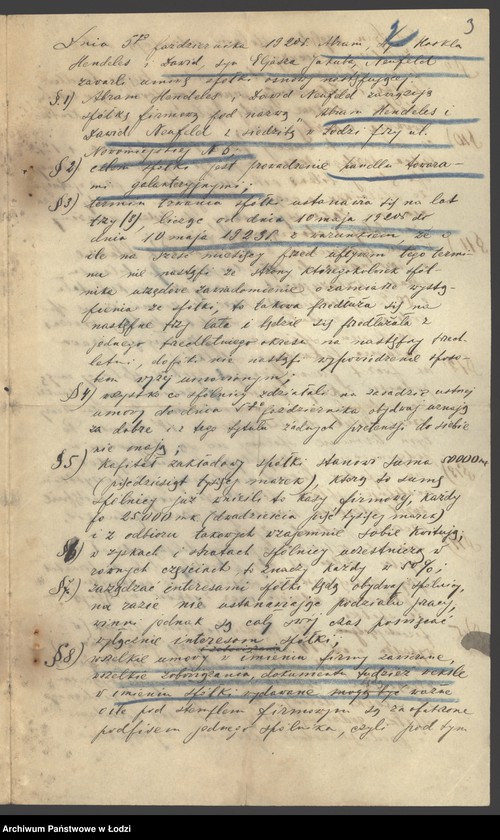 3
Dnia 5go października 1920r. Abram, syn Haskla
Hendeles i Dawid, syn Eljasza Jakuba, Neufeld
zawarli umowę spółki osnowy następującej:
§1) Abram Hendeles i Dawid Neufeld zawiązują
spółkę firmową pod nazwą „Abram Hendeles i
Dawid Neufeld z siedzibą w Łodzi przy ul.
Nowomiejskiej № 6.
§2) celem spółki jest prowadzenie handlu towara-
mi galanteryjnymi;
§3) termin trwania spółki ustanawia się na lat
trzy (3) licząc od dnia 10 maja 1920r. do
dnia 10 maja 1923r. z warunkiem, że o
ile na sześć miesięcy przed upływem tego termi-
nu nie nastąpi ze strony któregokolwiek spól-
nika urzędowe zawiadomienie o zamiarze wystą-
pienia ze spółki, to takowa przedłuża się na
następne trzy lata i będzie się przedłużała z
jednego trzechletniego okresu na następny trzech-
letni, dopóki nie nastąpi wypowiedzenie sposo-
bem wyżej umówionym;
§4) wszystko co spólnicy zdziałali na zasadzie ustnej
umowy do dnia 5go października obydwaj uznają
za dobre i z tego tytułu żadnych pretensji do siebie
nie mają;
§5) Kapitał zakładowy spółki stanowi suma 50000 mk
(pięćdziesiąt tysięcy marek), którą to sumę
spólnicy już wnieśli do kasy firmowej, każdy
po 25000 mk (dwadzieścia pięć tysięcy marek)
i z odbioru takowych wzajemnie sobie kwitują;
§6) w zyskach i stratach spólnicy uczestniczą w
równych częściach to znaczy każdy w 50%;
§7) zarządzać interesami spółki będą obydwaj spólnicy,
na razie nie ustanawiając podziału pracy,
winni jednak są cały swój czas poświęcić
wyłącznie interesom spółki;
§8) wszelkie umowy w imieniu firmy zawierane,
wszelkie zobowiązania, dokumenta tudzież weksle
w imieniu spółki wydawane mogą być ważne
o ile pod stemplem firmowym są zaopatrzone
podpisem jednego spólnika, czyli pod tym
Archiwum Państwowe w Łodzi